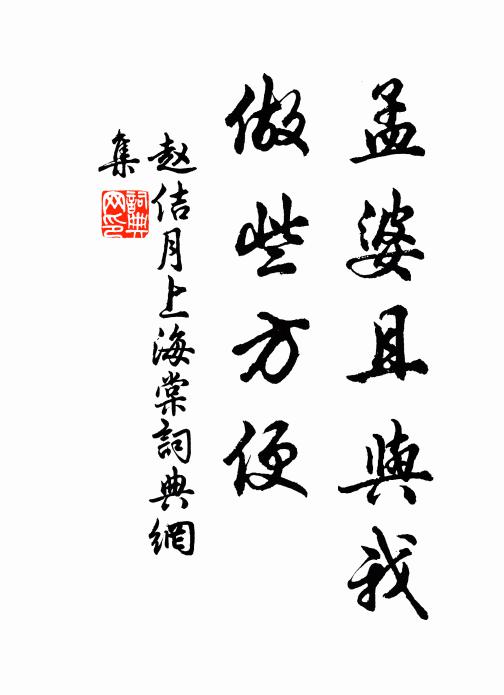 孟婆且與我
做些方便
赵佶月上海棠詞典網
集
詞典
网印